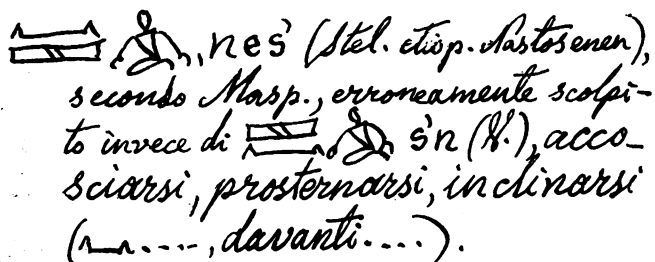 𓈖𓊃𓀀, nes̀ (Stel. etiop. Nastosenen),
secondo Masp., erroneamente scolpi-
to invece di 𓊃𓈖𓀀 s̀n (V.), acco-
sciarsi, prosternarsi, inclinarsi
(𓈖...., davanti....).